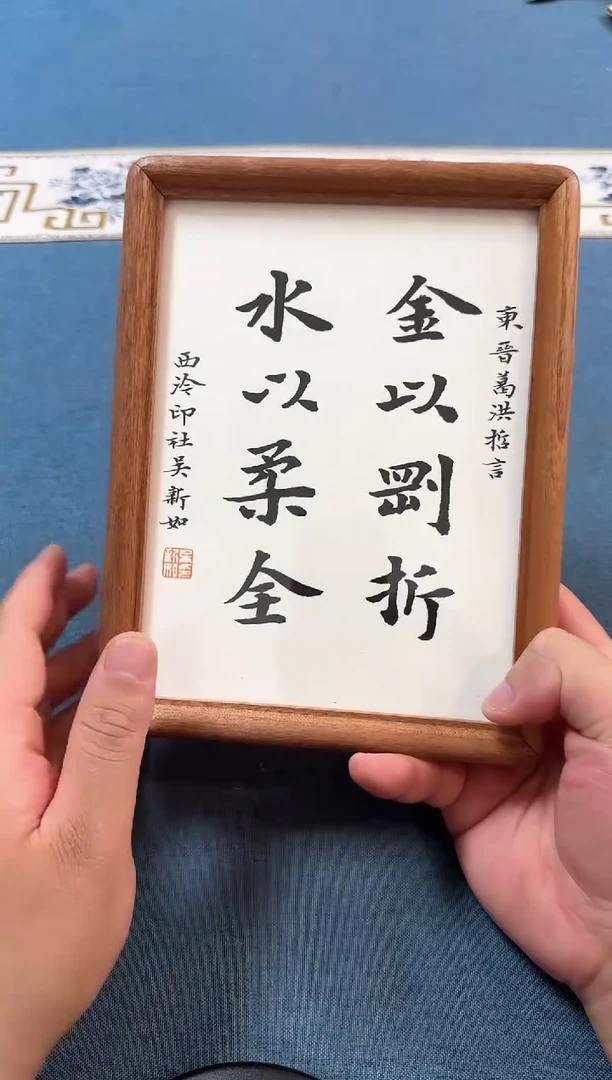 東晉葛洪哲言
金以剛折
水以柔全
西泠印社吳新如